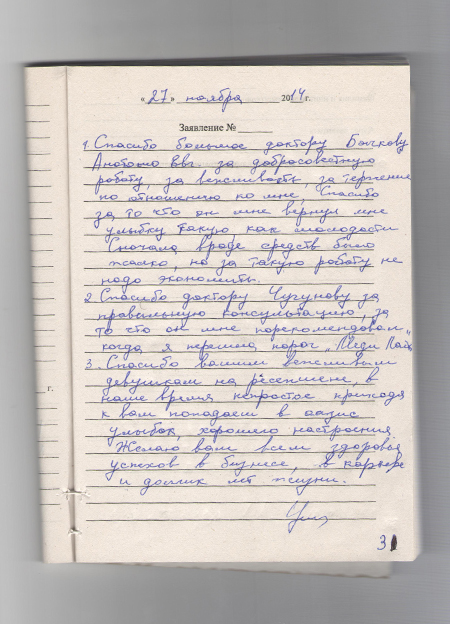 «27» ноября 2014 г.
Заявление №
1. Спасибо большое доктору Бычкову
Анатолию Евг. за добросовестную
работу, за вежливость, за терпение
по отношению ко мне, Спасибо
за то что он мне вернул мне
улыбку такую, как молодости
Сначала вроде средств было
жалко, но за такую работу не
надо экономить.
2. Спасибо доктору Чугунову за
правильную консультацию, за
то что он мне порекомендовал,
когда я перешла порог „Меди Лайф
3. Спасибо вашим вежливым
девушкам на ресепшене, в
наше время непростое приходя
к вам попадаем в оазис
улыбок, хорошего настроения.
Желаю вам всем здоровья
успехов в бизнесе, в карьере
и долгих лет жизни.
31
г.